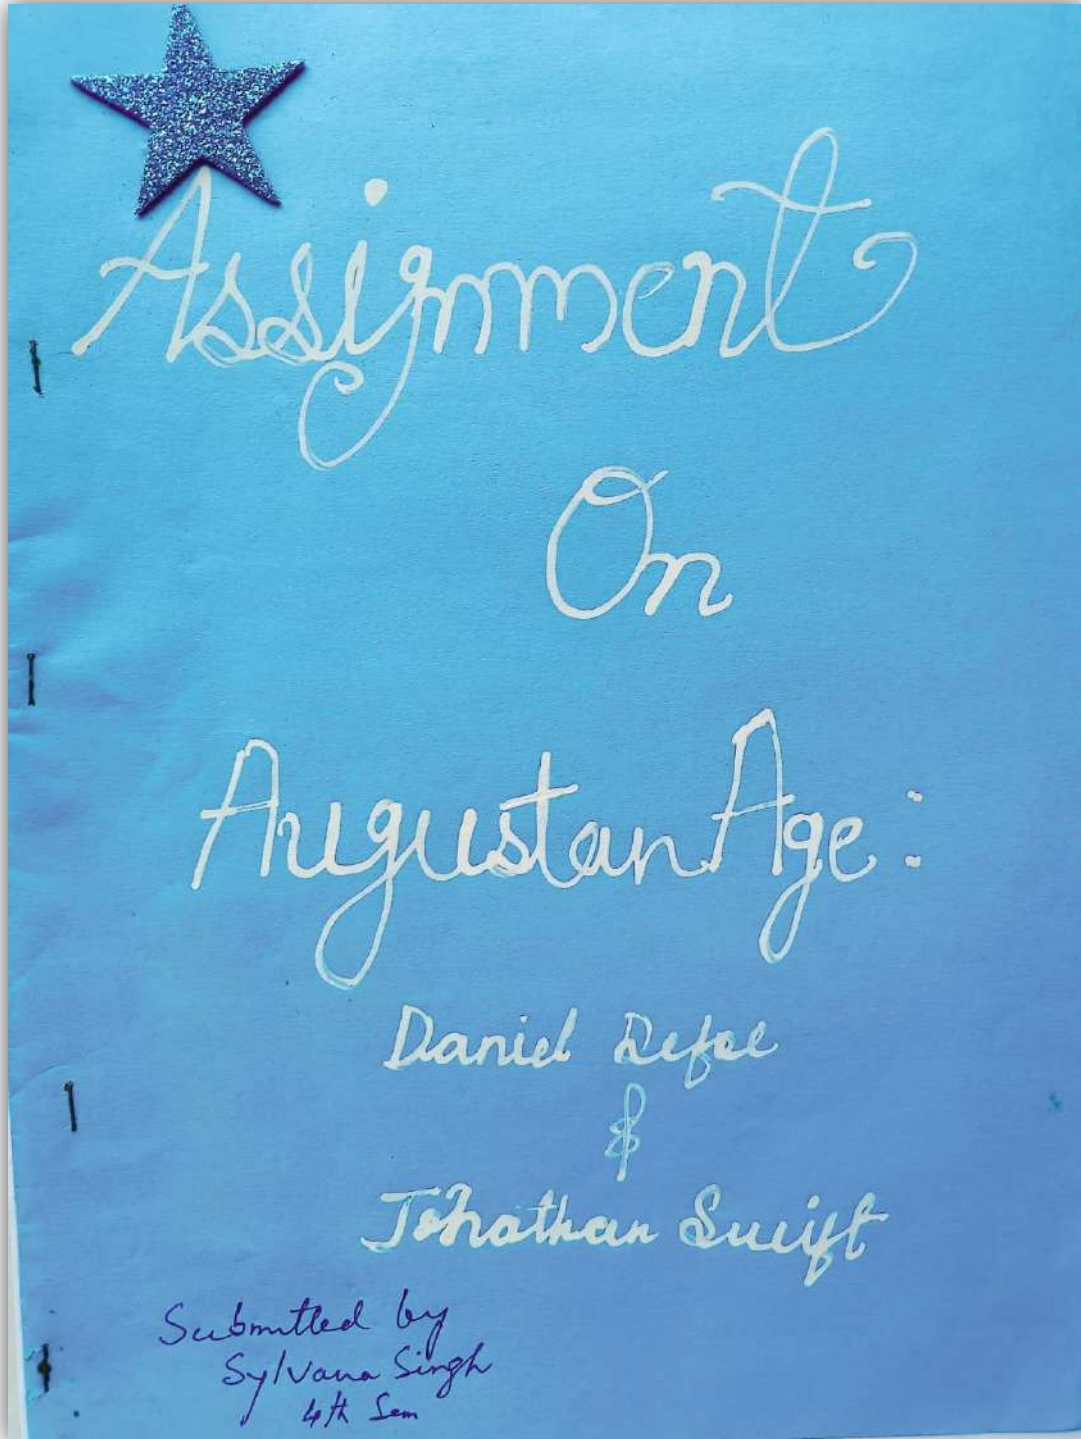 Assignment
On
Augustan Age:
Daniel Defoe
&
Jonathan Swift
Submitted by
Sylvana Singh
4th Sem